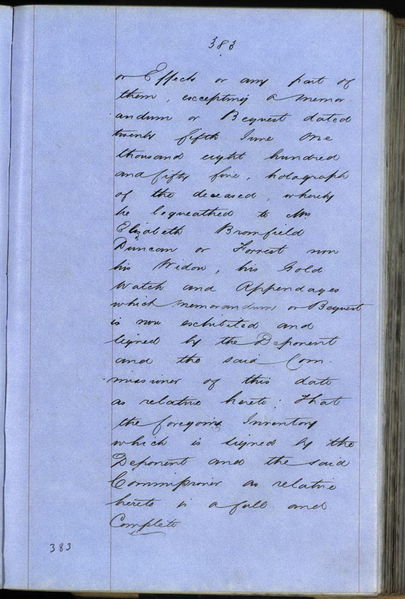 383
or Effects or any part of
them, excepting a Memor
andum or Bequest dated
twenty fifth June One
thousand eight hundred
and fifty five, holograph
of the deceased, whereby
he bequeathed to Mrs
Elizabeth Bromfield
Duncan or Forrest now
his Widow, his Gold
Watch and Appendages
which memorandum or Bequest
is now exhibited and
signed by the Deponent
and the said Com-
missioner of this date
as relative hereto: That
the foregoing Inventory
which is signed by the
Deponent and the said
Commissioner as relative
hereto is a full and
Complete
383